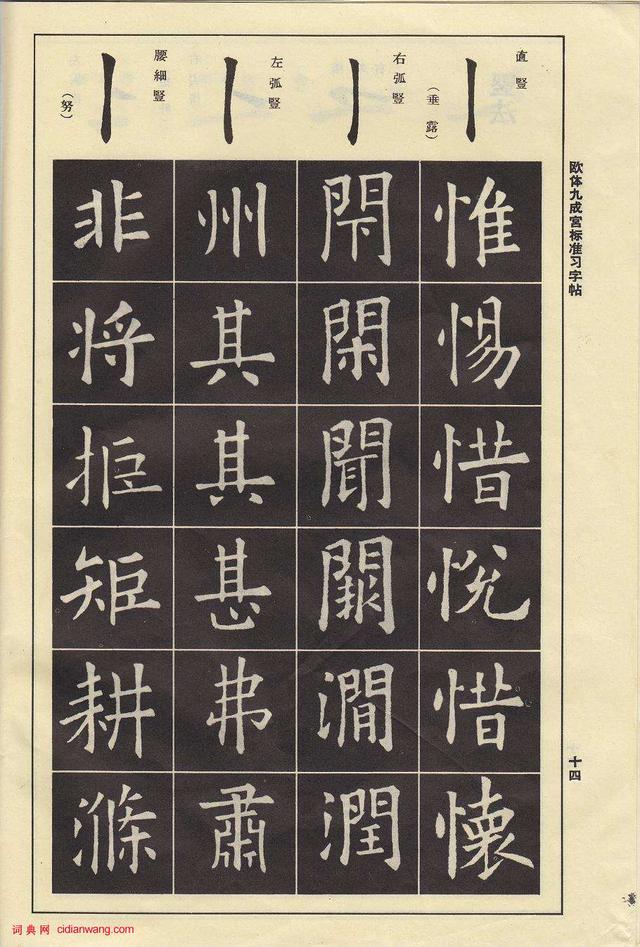 欧体九成宫标准习字帖
十四
直豎
（垂露）
右弧豎
左弧豎
腰細豎
（努）
惟惕惜悦惜懷
閇閑聞闕澗潤
州其其甚弗肅
非将拒矩耕滌
词典网 cidianwang.com